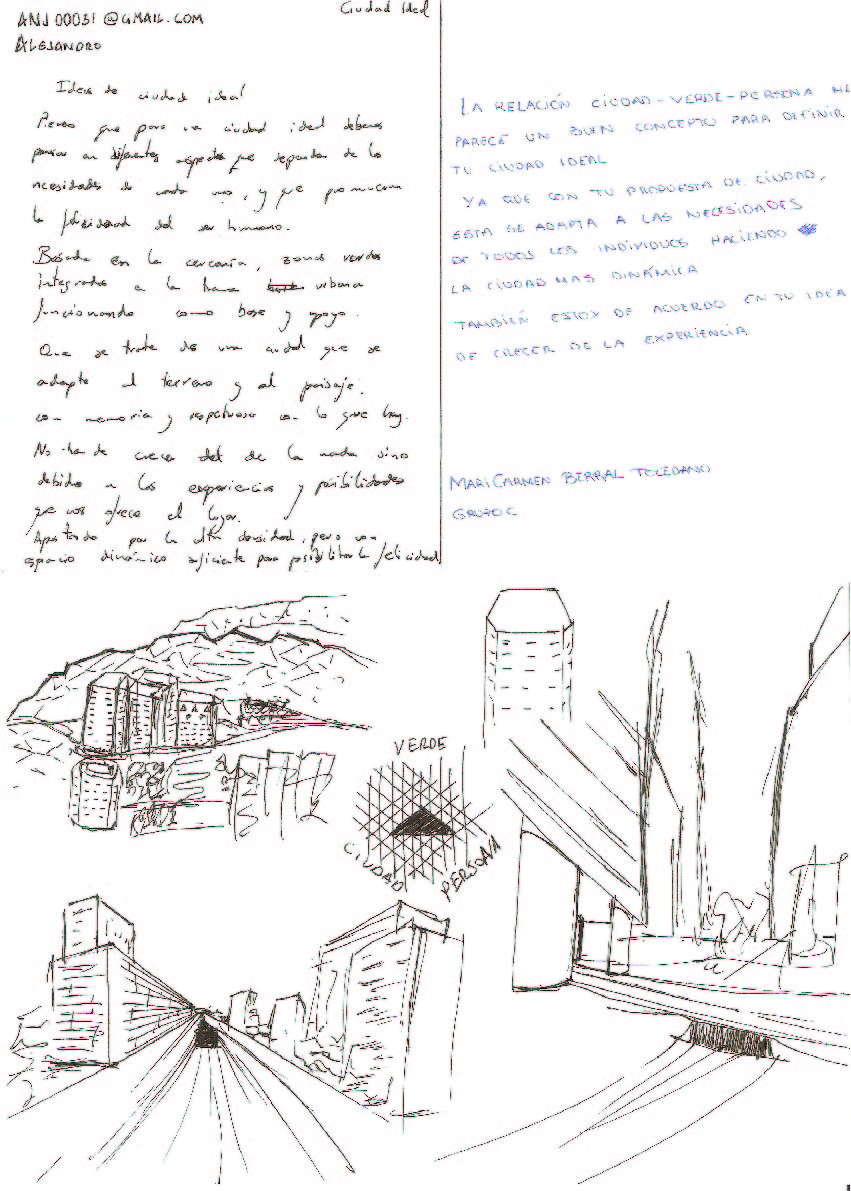 ANJ00031@GMAIL.COM
ALEJANDRO
Ciudad Ideal
Ideas de ciudad ideal
Pienso que para una ciudad ideal debemos
pensar en diferentes aspectos que dependen de las
necesidades de cada uno, y que promuevan
la felicidad del ser humano.
Basada en la cercanía, zonas verdes
integradas a la trama urbana
funcionando como base y apoyo.
Que se trate de una ciudad que se
adapte al terreno y al paisaje,
con memoria y respetuosa con lo que hay.
No ha de crecer de la nada sino
debido a las experiencias y posibilidades
que nos ofrece el lugar.
Apostando por la alta densidad, pero con
espacio dinámico suficiente para posibilitar la felicidad
LA RELACIÓN CIUDAD-VERDE-PERSONA ME
PARECE UN BUEN CONCEPTO PARA DEFINIR
TU CIUDAD IDEAL
YA QUE CON TU PROPUESTA DE CIUDAD,
ESTA SE ADAPTA A LAS NECESIDADES
DE TODOS LOS INDIVIDUOS HACIENDO
LA CIUDAD MAS DINÁMICA
TAMBIÉN ESTOY DE ACUERDO EN TU IDEA
DE CRECER DE LA EXPERIENCIA
MARI CARMEN BERRAL TOLEDANO
GRUPO C
VERDE
CIUDAD
PERSONA